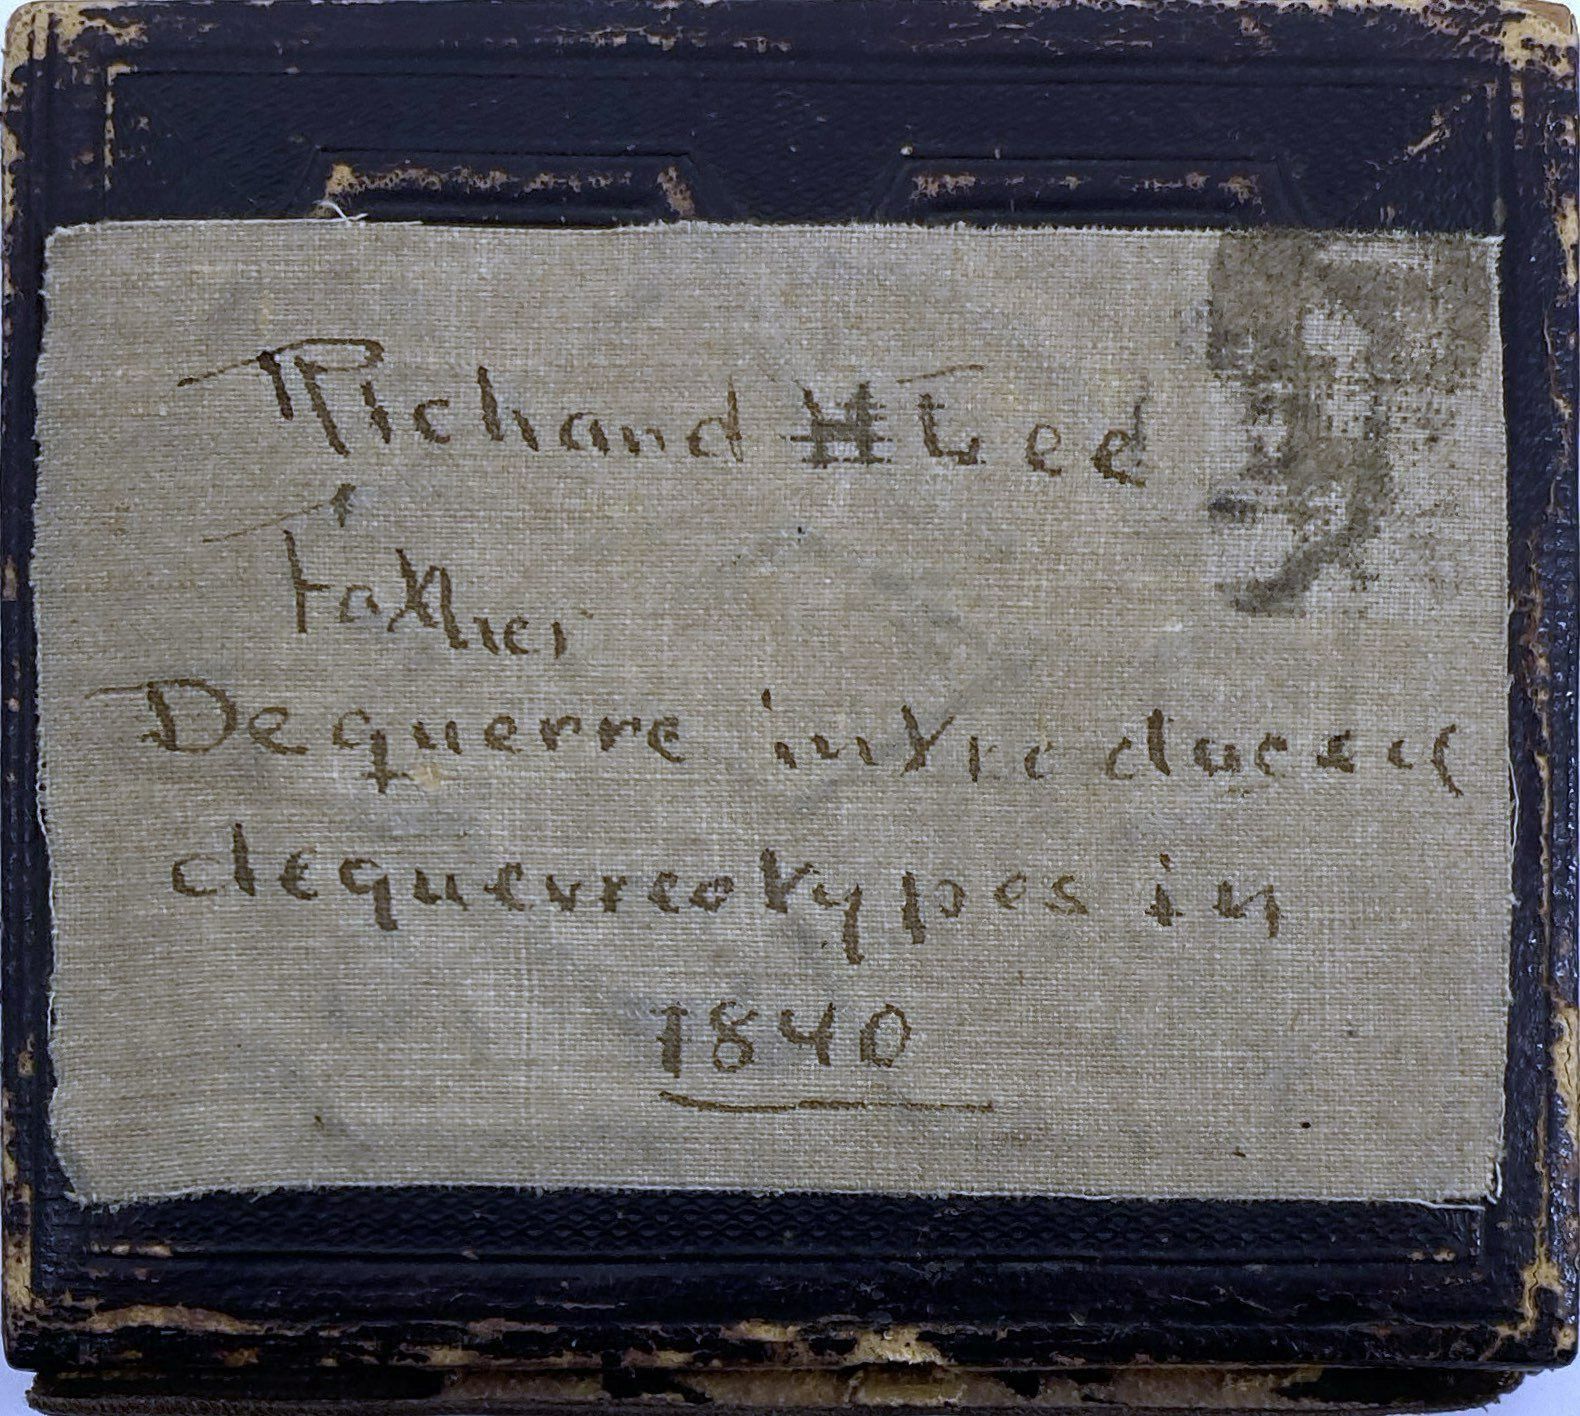 Richard H Lee
Father
Dequerre introduced
dequerreotypes in
1840